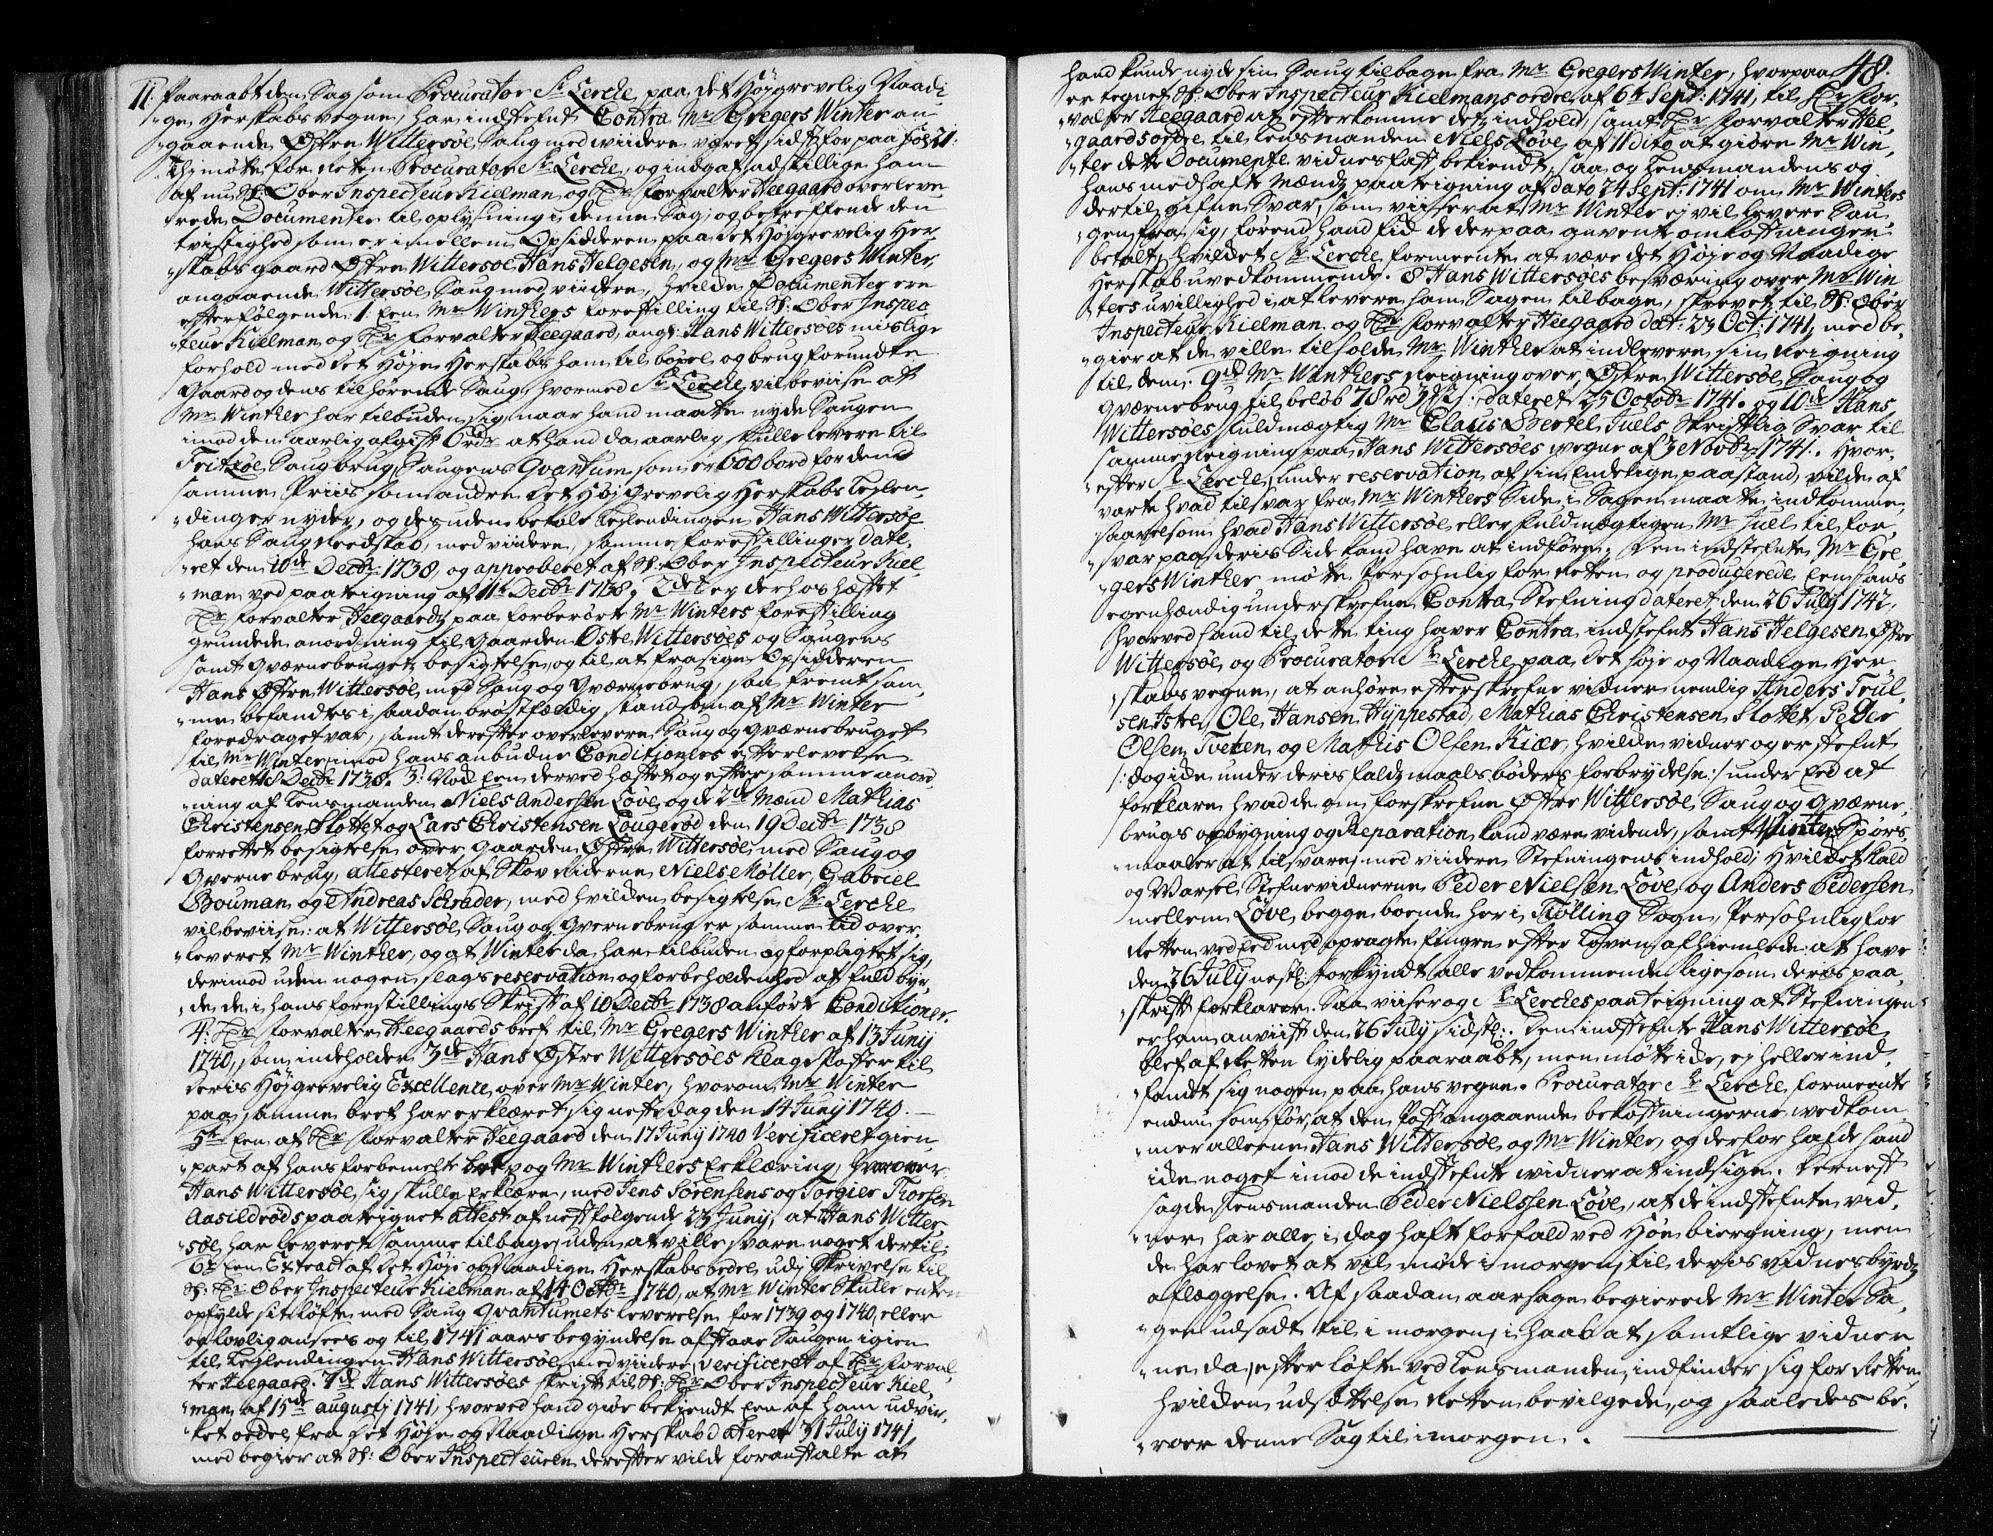 11: Paaraabt den Sag som Procurator Sr Lerche, paa det Højgrevelig Naadi-
ge Herskabs vegne, har indstefnt Contra Mr Gregers Winter an-
gaaende Østre Wittersøe Saug med viidere, været sidst for paa fol: 21:
Th: møtte for Retten Procurator Sr Lerche, og indgaf adskillige ham
af nu H: Ober Inspecteur Kielman, og Hr forvalter Heegaard overleve-
rede Documenter til oplysning i denne Sag, og betreffende den
tvistighed som er imellem Opsidderen paa det Højgrevelig Her-
skabs gaard Østre Wittersøe, Hans Helgesen, og Mr Gregers Winter,
angaaende Wittersøe Saug med viidere, hvilke Documenter ere
efterfølgende: 1: Een Mr Winthers forestilling til H: Ober Inspec-
teur Kielman, og Hr forvalter Heegaard, angl: Hans Wittersøes mislige
forhold med det Høje Herskabs ham til bøxel og brug forundte
Gaard og dens tilhørende Saug, hvormed Sr Lerche vil beviise at
Mr Winther har tilbuden sig, naar hand maatte nyde Saugen
imod den aarlig afgift 6 rdr, at hand da aarlig skulle levere til
Fritzøe Saugbrug, Saugens Qvantum som er 600 bord for den
samme Priis som andre det Høj Grevelig Herskabs Leylen-
dinger nyder, og desuden betale Leylendingen Hans Wittersøe
hans Saug Reedskab, med viidere, samme forestillinger date-
ret den 10de Decbr 1738, og approberet af H: Ober Inspecteur Kiel-
man ved paateigning af 11te Decbr 1738. 2det er derhos hæftet
Hr forvalter Heegaards paa forberørte Mr Winters forestilling
grundede anordning til Gaarden Østre Wittersøes og Saugens
samt Qværnebruget besigtelse, og til at frasige Opsidderen
Hans Østre Wittersøe, med Saug og Qværnebrug, saa fremt sam-
me befandtes i saadan brøstfældig stand som af Mr Winter
foredraget var, samt derefter overlevere Saug og Qværnebruget
til Mr Winter imod hans anbudne Conditjoners efterlevelse
dateret 18 Decbr 1738. 3: Nok een derved hæftet og efter samme anord-
ning af Lensmanden Niels Andersen Løve og de 2de Mænd Mathias
Christensen Slottet og Lars Christensen Lougerød den 19 Decbr 1738
forrettet besigtelse over Gaarden Østre Wittersøe med Saug og
Qværne brug, attesteret af Skov Riderne Niels Møller, Gabriel
Bouman og Andreas Schrader, med hvilken besigtelse Sr Lerche
vil beviise: at Wittersøe Saug og Qvernebrug er samme tid over-
leveret Mr Winther, og at Winter da har tilbuden og forpligtet sig,
derimod uden nogen slags reservation og forbeholdenhed at fuldbyr-
de de i hans forestillings Skrift af 10 Decbr 1738 anførte Conditioner.
4: Hr forvalter Heegaards bref til Mr Gregers Winther af 13 Junij
1740, som indeholder 3de Hans Østre Wittersøes Klage Poster til
deris Højgrevelig Excellence, over Mr Winter, hvorom Mr Winter
paa samme bref har erklæret sig neste dag den 14 Junij 1740.
5te Een af Hr Forvalter Heegaard den 17 Junij 1740 Verificeret gien-
part af hans forbemelte bref og Mr Winthers Erklæring, hvorover
Hans Wittersøe sig skulle erklære, med Jens Sørensens og Torgier Thorsen
Aasildrøds paateignet attest af nestfølgende 23 Junij, at Hans Witter-
søe har leveret samme tilbage uden at ville svare noget dertil.
6te Een Extract af det Høje og Naadige Herskabs ordre, udj Skrivelse til
H: Hr Ober Inspecteur Kielman af 14 Octbr 1740, at Mr Winter skulle enten
opfylde sit løfte med Saug Qvantumets leverelse for 1739 og 1740, eller
og lovlig ansees og til 1741 aars begyndelse afstaae Saugen igien
til Leylendingen Hans Wittersøe med viidere, verificeret af Hr forval-
ter Heegaard. 7de Hans Wittersøes skrift til H: Hr Ober Inspecteur Kiel-
man, af 15de augustj 1741, hvorved hand giør bekiendt een af ham udvir-
ket ordre fra det Høje og Naadige Herskab dateret 31 July 1741,
med begier at H: Ober Inspecteuren derefter vilde foranstalte at
48.
hand kunde nyde sin Saug tilbage fra Mr Gregers Winter, hvorpaa
er tegnet H: Ober Inspecteur Kielmans ordre af 6te Sept: 1741, til Hr for-
valter Heegaard at efterkomme dets indhold, samt Hr forvalter Hee-
gaards ordre til Lensmanden Niels Løve af 11 dito at giøre Mr Win-
ter dette Documente vidnesfast bekiendt, saa og Lensmandens og
hans medhafte Mænds paateigning af dato 24 Sept: 1741 om Mr Winters
dertil gifne Svar, som viiser at Mr Winther ej vil levere Sau-
gen fra sig, førend hand fik de derpaa anvente omkostninger
betalt, hvilket Sr Lerche formeente at være det Høje og Naadige
Herskab uvedkommende. 8 Hans Wittersøes besværing over Mr Win-
ters uvillighed i at levere ham Saugen tilbage, skrevet til H: Ober
Inspecteur Kielman og Hr forvalter Heegaard dat: 23 Oct: 1741, med be-
gier at de ville tilholde Mr Winther at indlevere sin Reigning
til dem. 9de Mr Winthers Reigning over Østre Wittersøe Saug og
Qværnebrug til beløb 78 rd 3 ꝑ s: dateret 25 Octobr 1741. og 10de Hans
Wittersøes fuldmægtig Mr Claus Bertel Juels Skriftlig Svar til
samme Reigning paa Hans Wittersøes vegne af 3 Novbr 1741. Hvor-
efter Sr Lerche, under reservation af sin Endelige paastand, vilde af-
varte hvad tilsvar fra Mr Winthers Side i Sagen maatte indkomme,
saavelsom hvad Hans Wittersøe eller fuldmægtigen Mr Juel til for-
svar paa deris Side kand have at indføre. Den indstefnte Mr Gre-
gers Winther møtte Persohnlig for Retten og producerede een hans
egenhændig underskrefne Contra Stefning dateret den 26 July 1742,
hvorved hand til dette ting haver Contra indstefnt Hans Helgesen Østre
Wittersøe og Procurator Sr Lerche, paa det Høje og Naadige Her-
skabs vegne, at anhøre efterskrefne vidner nemlig Anders Trul-
sen Istre, Ole Hansen Hyppestad, Mathias Christensen Slottet, Peder
Olsen Tveten og Mathis Olsen Kiær, hvilke vidner og er stefnt
/: dog ide under deris faldsmaals bøders forbrydelse :/ under Eed at
forklare hvad de om forskrefne Østre Wittersøe Saug og Qværne-
brugs opbygning og Reparation kand være vidende, samt Winters Spørs-
maaler at tilsvare, med viidere Stefningens indhold; Hvilket kald
og Varsel Stefnevidnerne Peder Nielsen Løve og Anders Pedersen
mellem Løve, begge boende her i Tiølling Sogn, Persohnlig for
Retten ved Eed med opragte fingre efter Loven afhiemlede at have
den 26 July nestl: forkyndt alle vedkommende ligesom deris paa-
skrift forklarer. Saa viiser og Sr Lerches paateigning at Stefningen
er ham anviist den 26 July sidstl:. Den indstefnte Hans Wittersøe
blef af Retten lydelig paaraabt, men møtte ide, ej heller ind-
fandt sig nogen paa hans vegne. Procurator Sr Lerche formeente
endnu som før, at den Post angaaende bekostningerne vedkom-
mer alleene Hans Wittersøe og Mr Winter, og derfor hafde hand
ide noget imod de indstefnte vidner at indsige. Dernest
sagde Lensmanden Peder Nielssen Løve, at de indstefnte vid-
ner har alle i dag haft forfald ved Høe biergning, men
de har lovet at vil møde i morgen til deris vidnesbyrds
aflæggelse. Af saadan aarsage begierede Mr Winter Sa-
gen udsadt til i morgen, i haab at samtlige vidner-
ne da, efter løfte ved Lensmanden, indfinder sig for Retten,
hvilken udsættelse Retten bevilgede, og saaledes be-
roer denne Sag til i morgen.